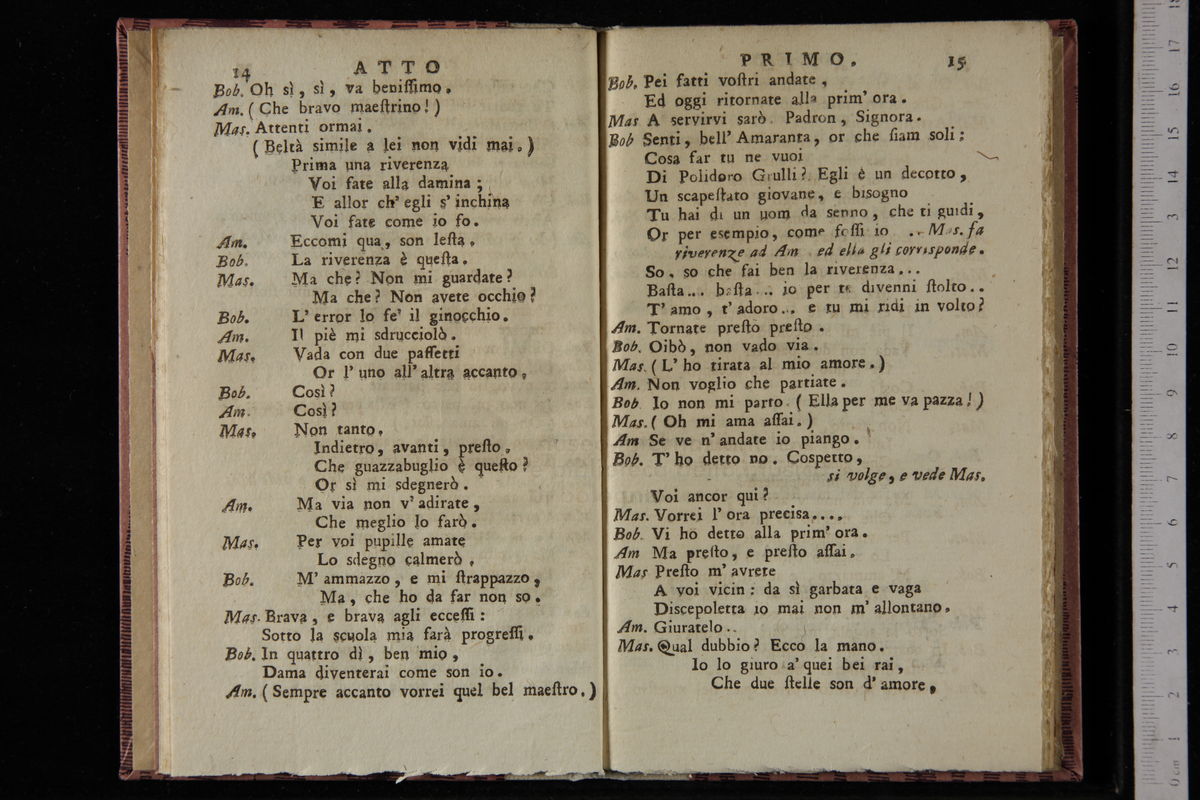 14 ATTO
Bob. Oh sì, sì, va beniſſimo.
Am. (Che bravo maeſtrino!)
Mas. Attenti ormai.
(Beltà simile a lei non vidi mai.)
Prima una riverenza
Voi fate alla damina;
E allor ch' egli s' inchina
Voi fate come io fo.
Am. Eccomi qua, son leſta.
Bob. La riverenza è queſta.
Mas. Ma che? Non mi guardate?
Ma che? Non avete occhio?
Bob. L' error lo fe' il ginocchio.
Am. Il piè mi sdrucciolò.
Mas. Vada con due paſſetti
Or l' uno all' altra accanto.
Bob. Così?
Am. Così?
Mas. Non tanto.
Indietro, avanti, preſto.
Che guazzabuglio è queſto?
Or sì mi sdegnerò.
Am. Ma via non v' adirate,
Che meglio lo farò.
Mas. Per voi pupille amate
Lo sdegno calmerò.
Bob. M' ammazzo, e mi ſtrappazzo,
Ma, che ho da far non so.
Mas. Brava, e brava agli ecceſſi:
Sotto la scuola mia farà progreſſi.
Bob. In quattro dì, ben mio,
Dama diventerai come son io.
Am. (Sempre accanto vorrei quel bel maeſtro.)
PRIMO. 15
Bob. Pei fatti voſtri andate,
Ed oggi ritornate alla prim' ora.
Mas A servirvi sarò. Padron, Signora.
Bob Senti, bell' Amaranta, or che ſiam soli:
Cosa far tu ne vuoi
Di Polidoro Grulli? Egli è un decotto,
Un scapeſtato giovane, e bisogno
Tu hai di un uom da senno, che ti guidi,
Or per esempio, come foſſi io .. Mas. fa
riverenze ad Am. ed ella gli corrisponde.
So, so che fai ben la riverenza...
Baſta... baſta... io per te divenni ſtolto..
T' amo, t' adoro... e tu mi ridi in volto?
Am. Tornate preſto preſto.
Bob. Oibò, non vado via.
Mas. (L' ho tirata al mio amore.)
Am. Non voglio che partiate.
Bob. Io non mi parto. (Ella per me va pazza!)
Mas. (Oh mi ama aſſai.)
Am Se ve n' andate io piango.
Bob. T' ho detto no. Cospetto,
si volge, e vede Mas.
Voi ancor qui?
Mas. Vorrei l' ora precisa....
Bob. Vi ho detto alla prim' ora.
Am Ma preſto, e preſto aſſai.
Mas Preſto m' avrete
A voi vicin: da sì garbata e vaga
Discepoletta io mai non m' allontano.
Am. Giuratelo..
Mas. Qual dubbio? Ecco la mano.
Io lo giuro a' quei bei rai,
Che due ſtelle son d' amore,